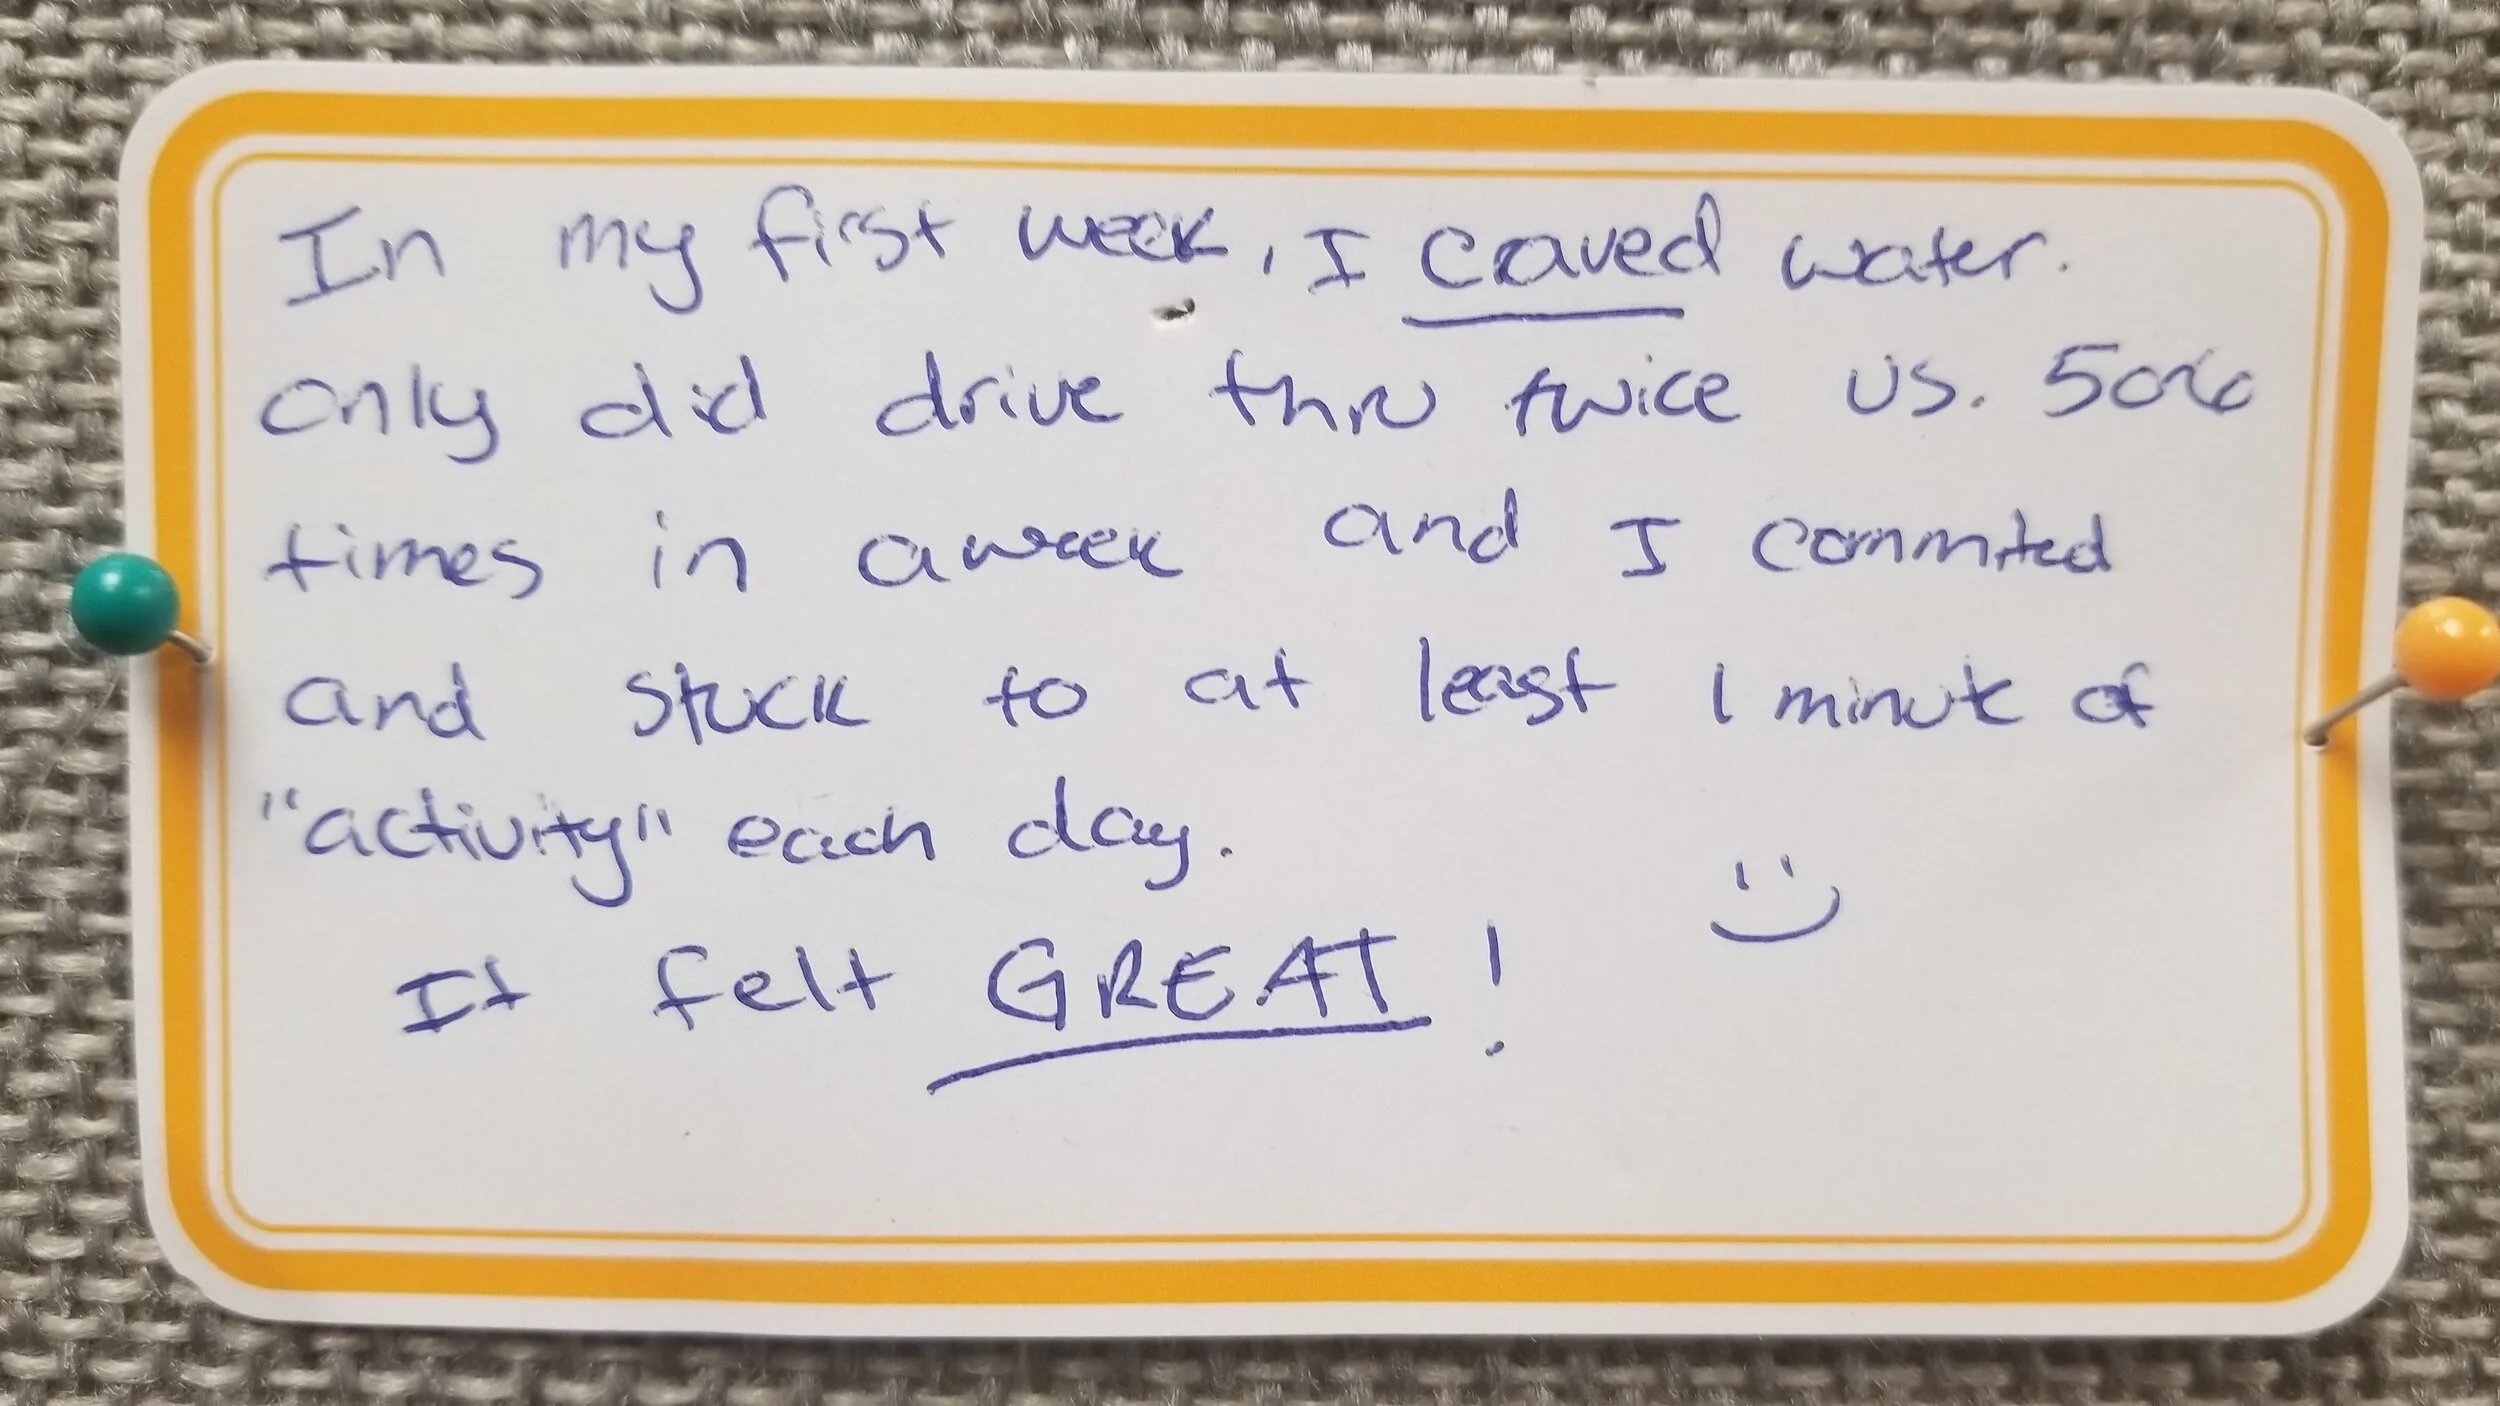 In my first week, I craved water.
only did drive thru twice vs. 5 or 6
times in a week and I commited
and stuck to at least 1 minute of
"activity" each day.
It felt GREAT!